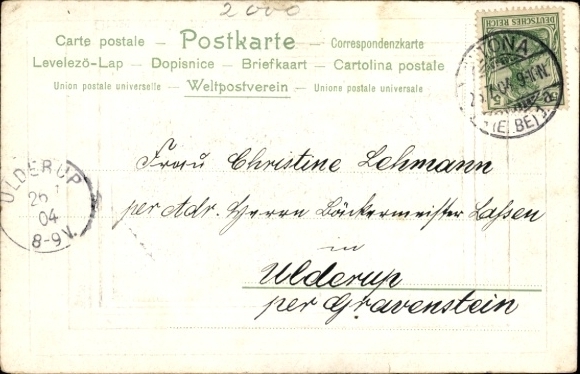 2000
Carte postale — Postkarte — Correspondenzkarte
Levelező-Lap — Dopisnice — Briefkaart — Cartolina postale
Union postale universelle — Weltpostverein — Unione postale universale
DEUTSCHES REICH
5
(ELBE)
ULDERUP
26
04
8-9V.
Frau Christine Lehmann
per Adr. Herrn Bäckermeister Lassen
in
Ulderup
per Gravenstein